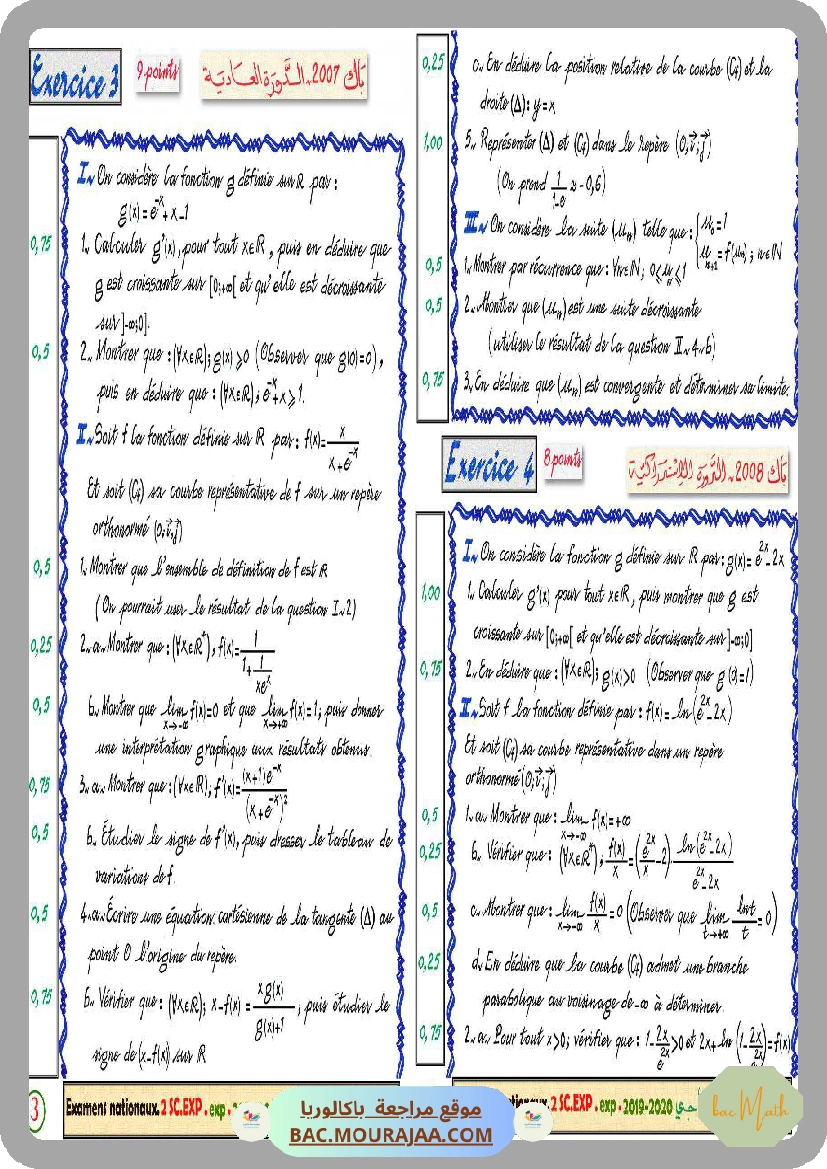 Exercice 3 9 points باك 2007 ـ الدَّوْرَة العَادِيَة
I~ On considère la fonction g définie sur ℝ par :
g(x) = e^{-x} + x - 1
0,75 1~ Calculer g'(x), pour tout x∈ℝ, puis en déduire que
g est croissante sur [0;+∞[ et qu'elle est décroissante
sur ]-∞;0].
0,5 2~ Montrer que : (∀x∈ℝ); g(x) ⩾ 0 (Observer que g(0)=0),
puis en déduire que : (∀x∈ℝ); e^{-x} + x ⩾ 1.
II~ Soit f la fonction définie sur ℝ par : f(x) = x/(x+e^{-x})
Et soit (Cf) sa courbe représentative de f sur un repère
orthonormé (0;i⃗;j⃗)
0,5 1~ Montrer que l'ensemble de définition de f est ℝ
(On pourrait user le résultat de la question I~2)
0,25 2~a~ Montrer que : (∀x∈ℝ*), f(x) = 1/(1+1/(xe^x))
0,5 b~ Montrer que lim_{x→-∞} f(x)=0 et que lim_{x→+∞} f(x)=1; puis donner
une interprétation graphique aux résultats obtenus.
0,75 3~a~ Montrer que : (∀x∈ℝ), f'(x) = (x+1)e^{-x}/(x+e^{-x})²
0,5 b~ Étudier le signe de f'(x), puis dresser le tableau de
variations de f.
0,5 4~a~ Écrire une équation cartésienne de la tangente (Δ) au
point O l'origine du repère.
0,75 b~ Vérifier que : (∀x∈ℝ); x-f(x) = xg(x)/(g(x)+1) ; puis étudier le
signe de (x-f(x)) sur ℝ
0,25 c~ En déduire la position relative de la courbe (Cf) et la
droite (Δ): y=x
1,00 5~ Représenter (Δ) et (Cf) dans le repère (0,i⃗;j⃗)
(On prend 1/(1-e) ≃ -0,6)
III~ On considère la suite (u_n) telle que : { u_0=1
u_{n+1} = f(u_n) ; n∈ℕ
0,5 1~ Montrer par récurrence que : ∀n∈ℕ; 0 ⩽ u_n ⩽ 1
0,5 2~ Montrer que (u_n) est une suite décroissante
(utiliser le résultat de la question II~4~b)
0,75 3~ En déduire que (u_n) est convergente et déterminer sa limite.
Exercice 4 8 points باك 2008 ـ الدَّوْرَة الاِسْتِدْرَاكِيَّة
I~ On considère la fonction g définie sur ℝ par : g(x) = e^{2x} - 2x
1,00 1~ Calculer g'(x) pour tout x∈ℝ, puis montrer que g est
croissante sur [0;+∞[ et qu'elle est décroissante sur ]-∞;0]
0,75 2~ En déduire que : (∀x∈ℝ); g(x)>0 (Observer que g(0)=1)
II~ Soit f la fonction définie par : f(x) = ln(e^{2x} - 2x)
Et soit (Cf) sa courbe représentative dans un repère
orthonormé (0;i⃗;j⃗)
0,5 1~a~ Montrer que : lim_{x→-∞} f(x)=+∞
0,25 b~ Vérifier que : (∀x∈ℝ*), f(x)/x = (e^{2x}/x - 2)·ln(e^{2x}-2x)/(e^{2x}-2x)
0,5 c~ Montrer que : lim_{x→-∞} f(x)/x = 0 (Observer que lim_{t→+∞} lnt/t = 0)
0,25 d~ En déduire que la courbe (Cf) admet une branche
parabolique au voisinage de -∞ à déterminer.
0,75 2~a~ Pour tout x>0; vérifier que : 1-2x/e^{2x}>0 et 2x+ln(1-2x/e^{2x})=f(x)
3 Examens nationaux. 2 SC.EXP . exp . 2SC.EXP . exp . 2019-2020
موقع مراجعة باكالوريا
BAC.MOURAJAA.COM
bac Math